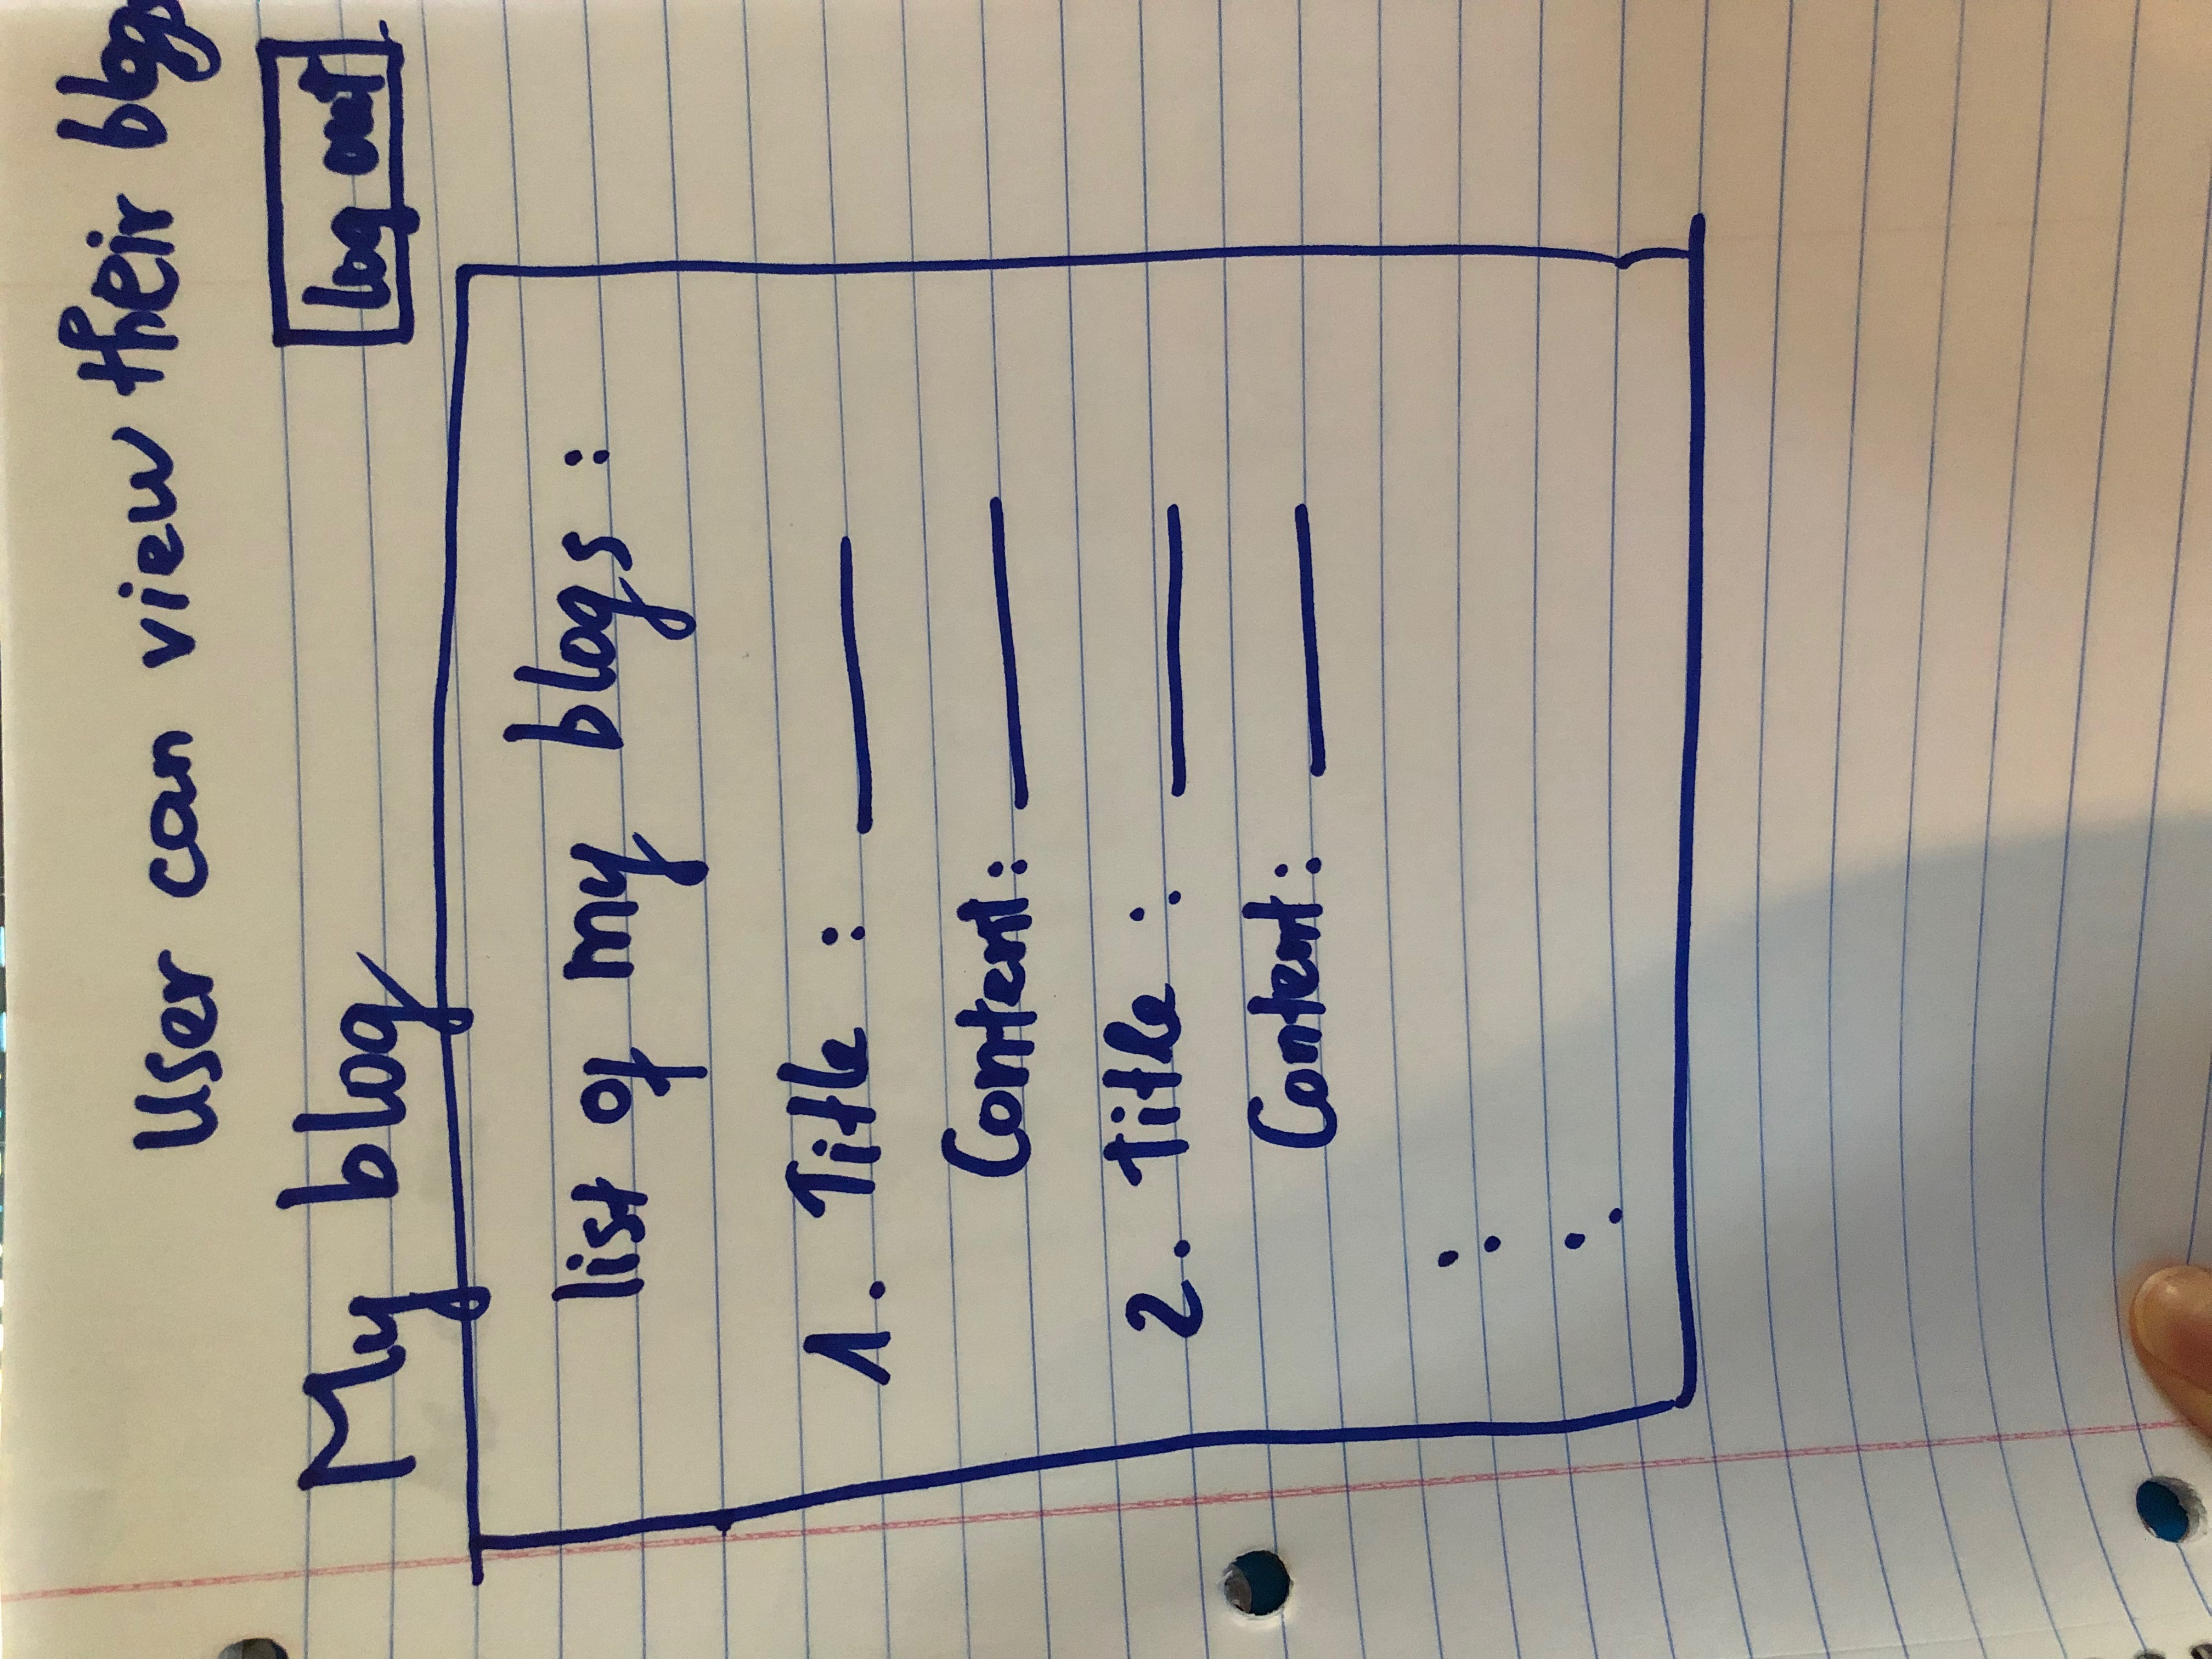 User can view their blogs
My blog
log out
list of my blogs :
1. Title :
Content:
2. Title :
Content: